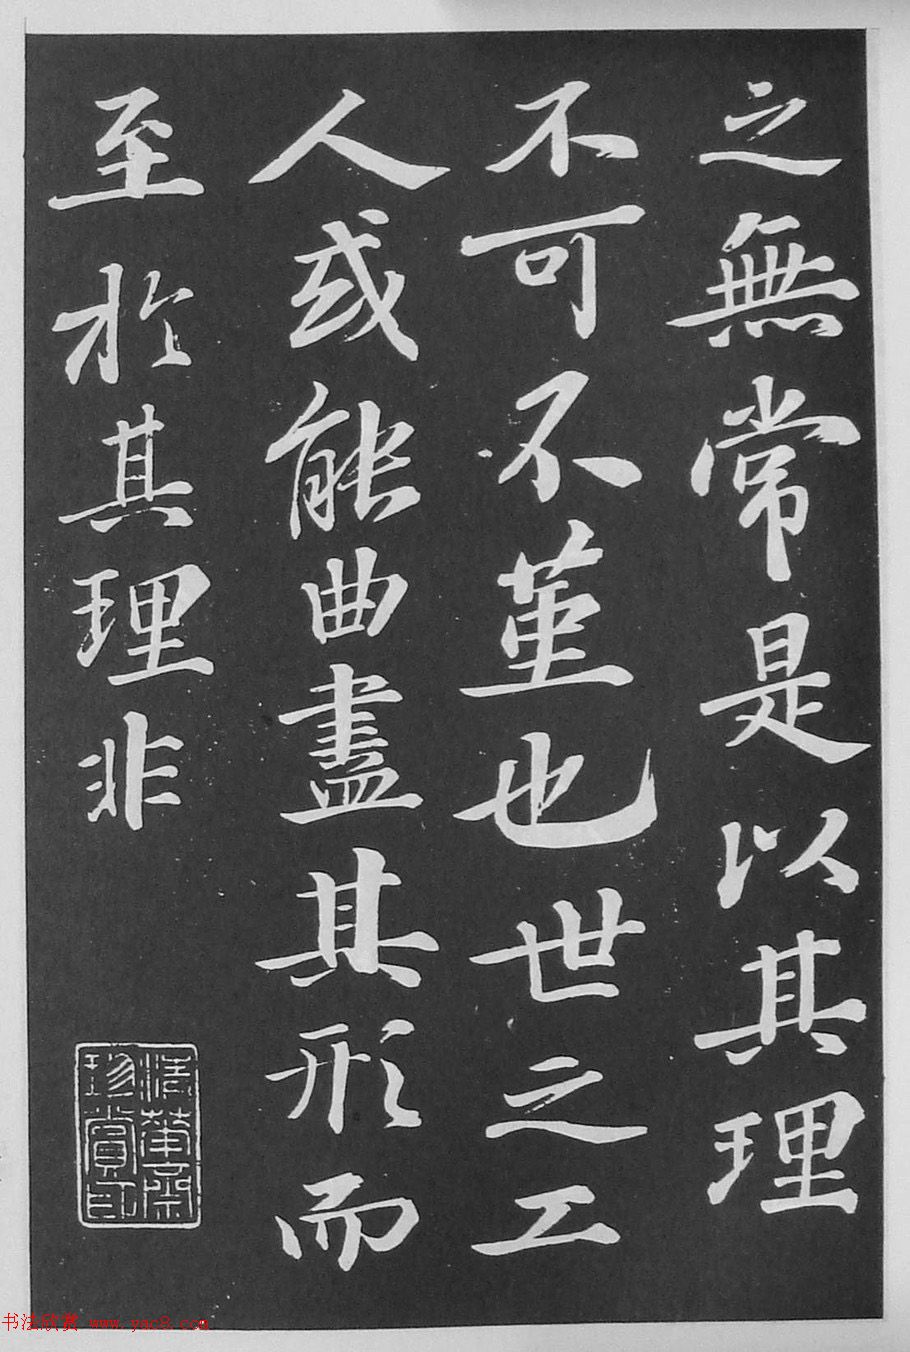 之無常是以其理
不可不堇也世之工
人或能曲盡其形而
至於其理非
珍賞印
书法欣赏 www.yac8.com